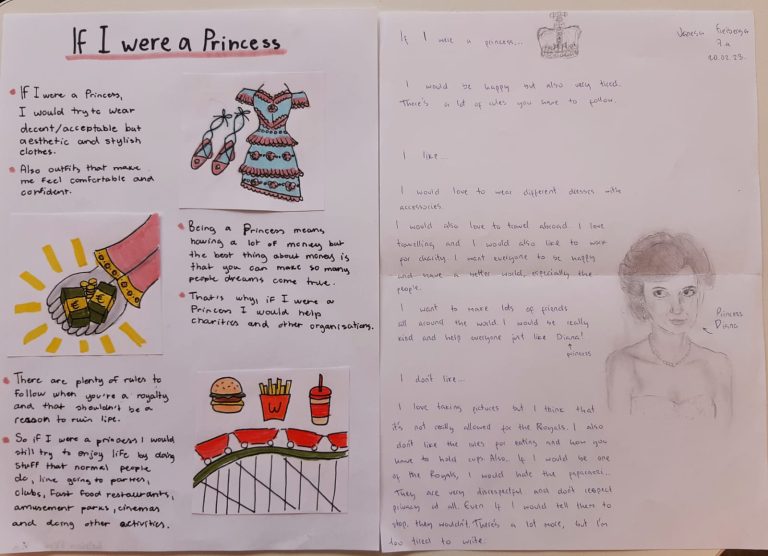 If I were a Princess
If I were a Princess,
I would try to wear
decent/acceptable but
aesthetic and stylish
clothes.
Also outfits that make
me feel comfortable and
confident.
Being a Princess means
having a lot of money but
the best thing about money is
that you can make so many
people dreams come true.
That's why, if I were a
Princess I would help
charities and other organisations.
€
€
There are plenty of rules to
follow when you're a royalty
and that shouldn't be a
reason to ruin life.
So if I were a princess I would
still try to enjoy life by doing
stuff that normal people
do, like going to parties,
clubs, fast food restaurants,
amusement parks, cinemas
and doing other activities.
W
If I were a princess...
Vanesa
7.a
20.02.23.
I would be happy but also very tired.
There's a lot of rules you have to follow.
I like...
I would love to wear different dresses with
accessories.
I would also love to travel abroad. I love
travelling and I would also like to work
for charity. I want everyone to be happy
and have a better world, especially the
people.
I want to make lots of friends
all around the world. I would be really
kind and help everyone just like Diana!
princess
Princess
Diana
I don't like...
I love taking pictures but I think that
it's not really allowed for the Royals. I also
don't like the rules for eating and how you
have to hold cups. Also.. If I would be one
of the Royals, I would hate the paparazzi..
They are very disrespectful and don't respect
privacy at all. Even if I would tell them to
stop, they wouldn't. There's a lot more, but I'm
too tired to write.